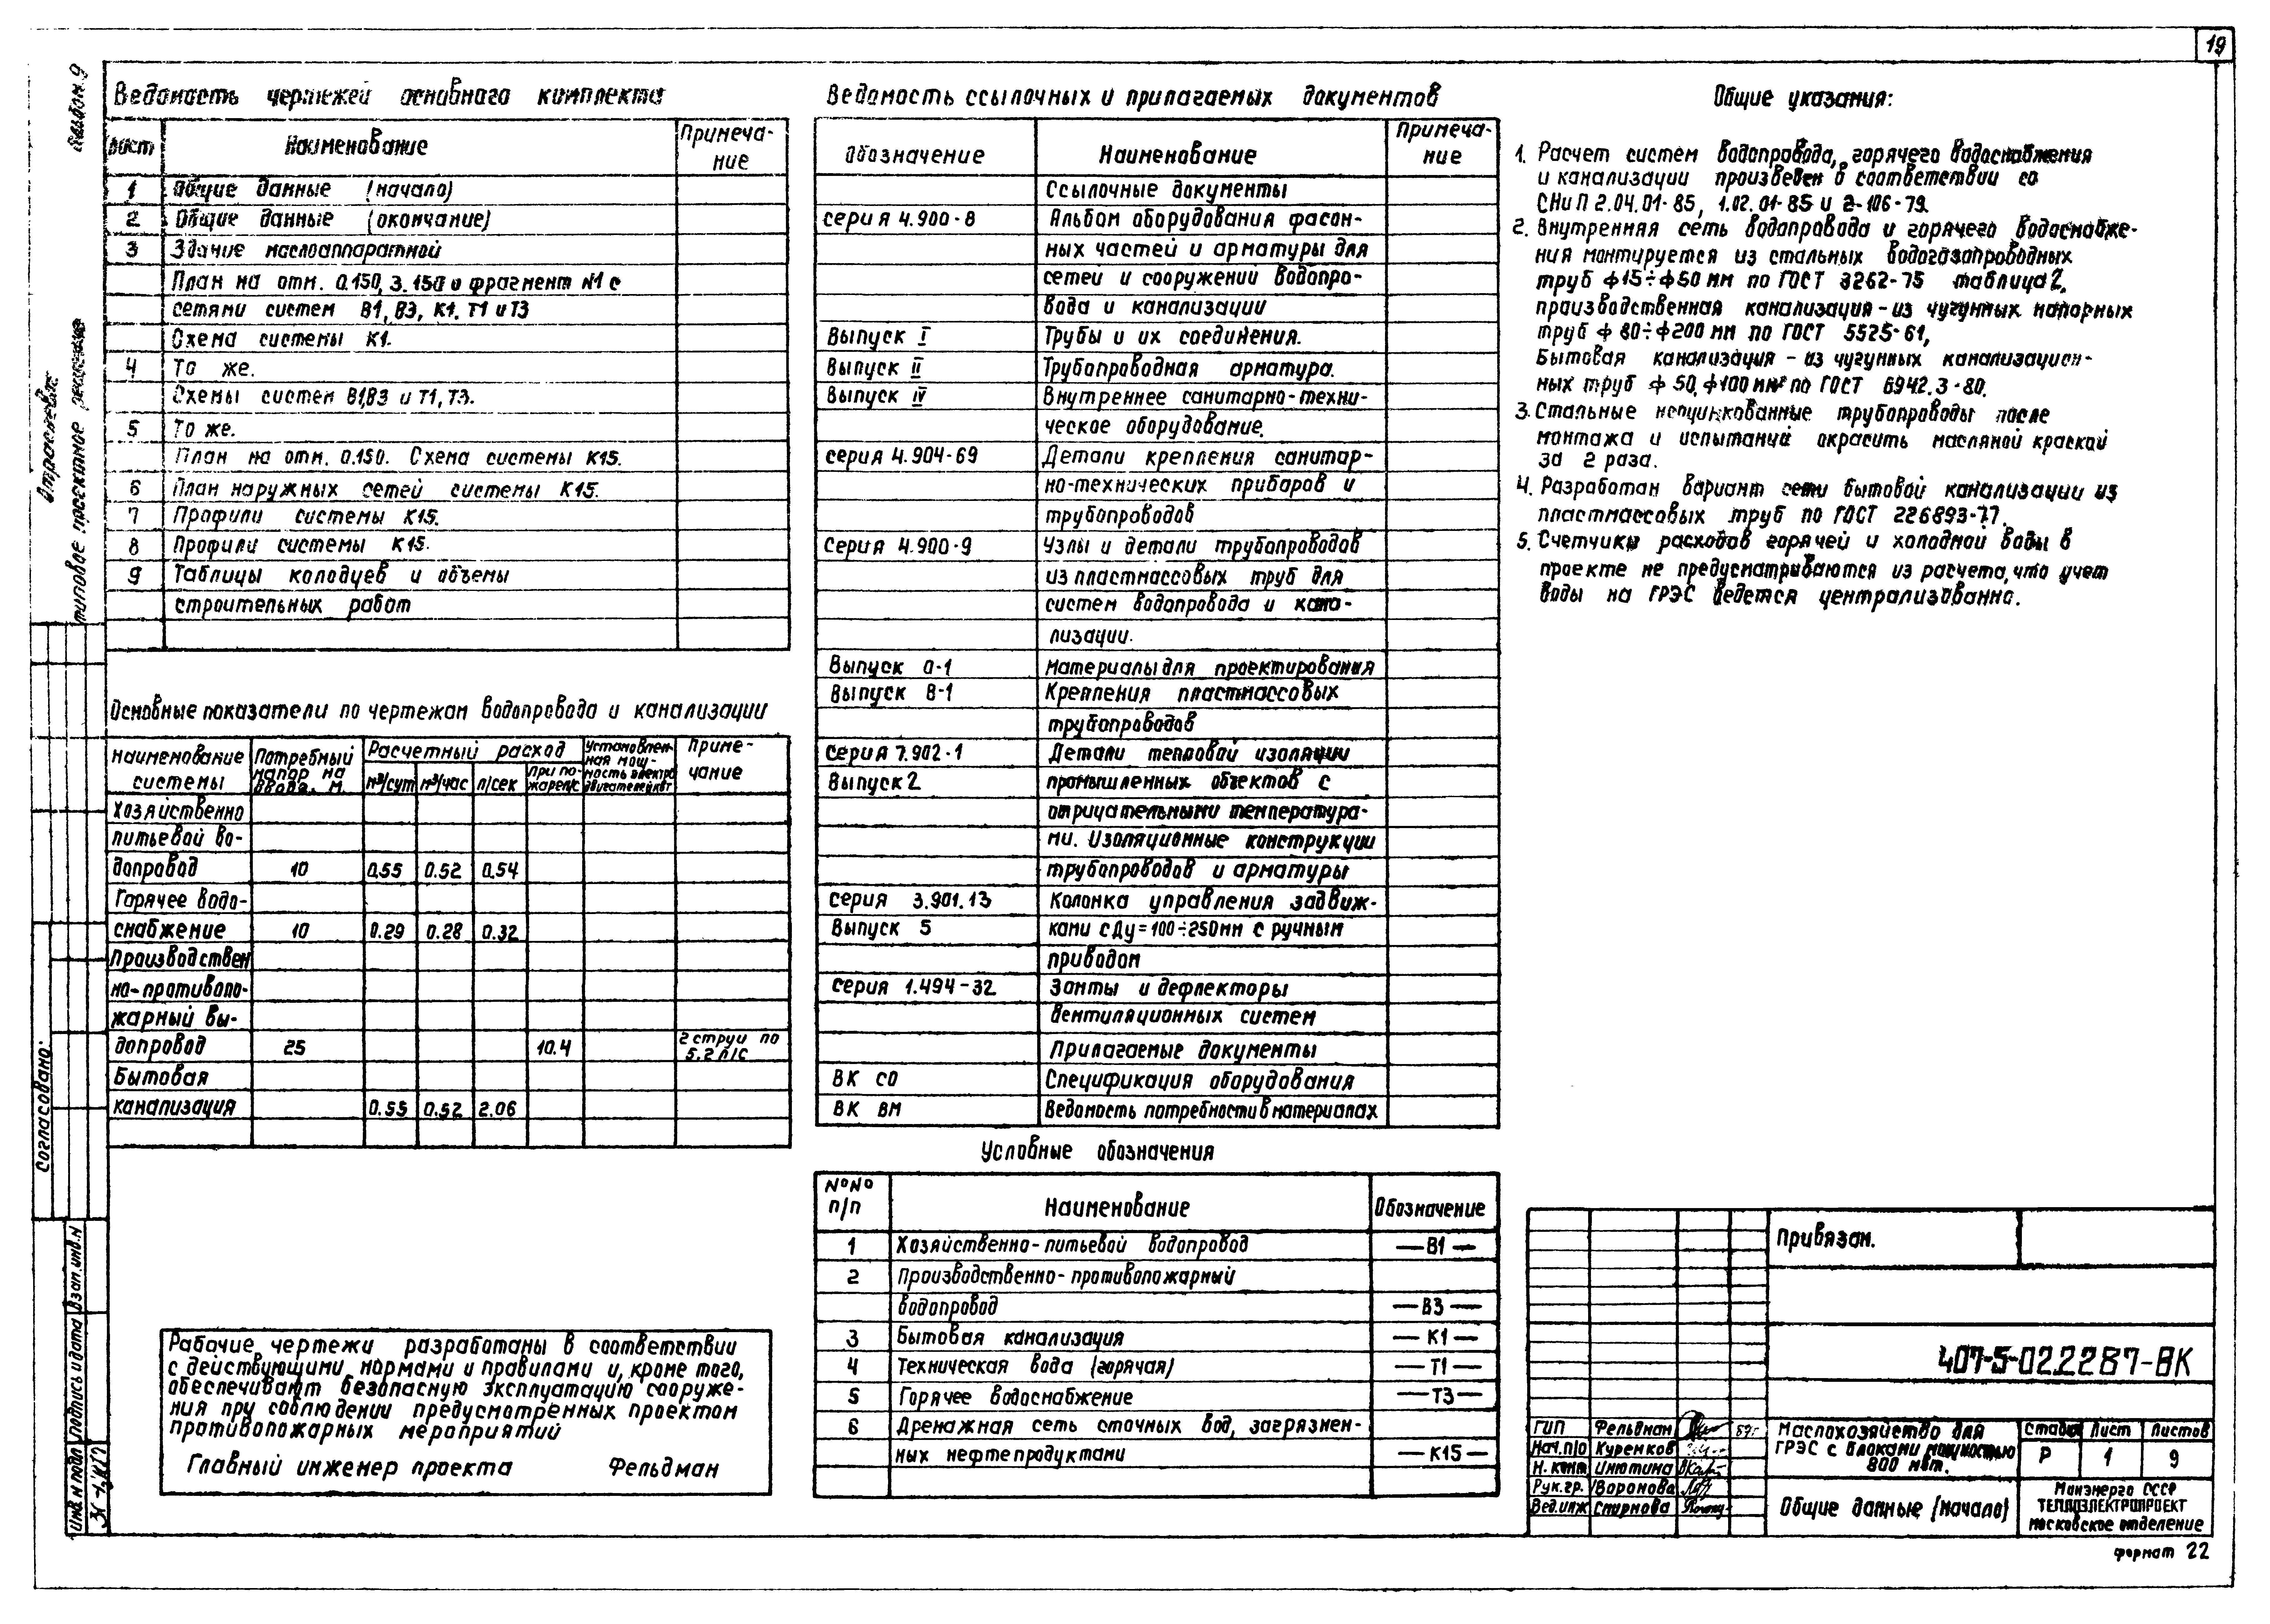 19
Альбом 9
Отраслевое
типовое проектное решение
Согласовано:
Взам.инв.N
Подпись и дата
Инв.N подл
Ведомость чертежей основного комплекта
Лист
Наименование
Примеча-
ние
1 Общие данные (начало)
2 Общие данные (окончание)
3 Здание маслоаппаратной
План на отм. 0.150, 3.150 и фрагмент N1 с
сетями систем В1, В3, К1. Т1 и Т3
Схема системы К1.
4 То же.
Схемы систем В1,В3 и Т1, Т3.
5 То же.
План на отм. 0.150. Схема системы К15.
6 План наружных сетей системы К15.
7 Профили системы К15.
8 Профили системы К15.
9 Таблицы колодцев и объемы
строительных работ
Основные показатели по чертежам водопровода и канализации
Наименование
системы
Потребный
напор на
вводе. м.
Расчетный расход
м³/сут м³/час л/сек
При по-
жаре л/с
Установлен-
ная мощ-
ность электро
двигателей квт
Приме-
чание
Хозяйственно
питьевой во-
допровод 10 0.55 0.52 0.54
Горячее водо-
снабжение 10 0.29 0.28 0.32
Производствен
но-противопо-
жарный вы-
допровод 25 10.4 2 струи по
5.2 л/с
Бытовая
канализация 0.55 0.52 2.06
Рабочие чертежи разработаны в соответствии
с действующими нормами и правилами и, кроме того,
обеспечивают безопасную эксплуатацию сооруже-
ния при соблюдении предусмотренных проектом
противопожарных мероприятий
Главный инженер проекта Фельдман
Ведомость ссылочных и прилагаемых документов
Обозначение
Наименование
Примеча-
ние
Ссылочные документы
серия 4.900-8 Альбом оборудования фасон-
ных частей и арматуры для
сетей и сооружений водопро-
вода и канализации
Выпуск I Трубы и их соединения.
Выпуск II Трубопроводная арматура.
Выпуск IV Внутреннее санитарно-техни-
ческое оборудование.
серия 4.904-69 Детали крепления санитар-
но-технических приборов и
трубопроводов
Серия 4.900-9 Узлы и детали трубопроводов
из пластмассовых труб для
систем водопровода и кана-
лизации.
Выпуск 0-1 Материалы для проектирования
Выпуск В-1 Крепления пластмассовых
трубопроводов
Серия 7.902-1 Детали тепловой изоляции
Выпуск 2 промышленных объектов с
отрицательными температура-
ми. Изоляционные конструкции
трубопроводов и арматуры
Серия 3.901.13 Колонка управления задвиж-
Выпуск 5 ками с Ду=100÷250мм с ручным
приводом
серия 1.494-32 Зонты и дефлекторы
вентиляционных систем
Прилагаемые документы
ВК СО Спецификация оборудования
ВК ВМ Ведомость потребности в материалах
Условные обозначения
N°N°
п/п
Наименование
Обозначение
1 Хозяйственно-питьевой водопровод —В1—
2 Производственно-противопожарный
водопровод —В3—
3 Бытовая канализация —К1—
4 Техническая вода (горячая) —Т1—
5 Горячее водоснабжение —Т3—
6 Дренажная сеть сточных вод, загрязнен-
ных нефтепродуктами —К15—
Общие указания:
1. Расчет систем водопровода, горячего водоснабжения
и канализации произведен в соответствии со
СНиП 2.04.01-85, 1.02.01-85 и 2-106-79.
2. Внутренняя сеть водопровода и горячего водоснабже-
ния монтируется из стальных водогазопроводных
труб ф15÷ф50 мм по ГОСТ 3262-75 таблица 2,
производственная канализация-из чугунных напорных
труб ф 80÷ф200 мм по ГОСТ 5525-61,
Бытовая канализация - из чугунных канализацион-
ных труб ф 50, ф100 мм по ГОСТ 6942.3-80.
3. Стальные неоцинкованные трубопроводы после
монтажа и испытаний окрасить масляной краской
за 2 раза.
4. Разработан вариант сети бытовой канализации из
пластмассовых труб по ГОСТ 226893-77.
5. Счетчики расходов горячей и холодной воды в
проекте не предусматриваются из расчета, что учет
воды на ГРЭС ведется централизованно.
Привязан.
407-5-022287-ВК
ГИП Фельдман
Нач.п/о Куренков
Н. конт. Инютина
Рук.гр. Воронова
Вед.инж Смирнова
Маслохозяйство для
ГРЭС с блоками мощностью
800 мвт.
Стадия Лист Листов
Р 1 9
Общие данные (начало)
Минэнерго СССР
ТЕПЛОЭЛЕКТРОПРОЕКТ
московское отделение
формат 22